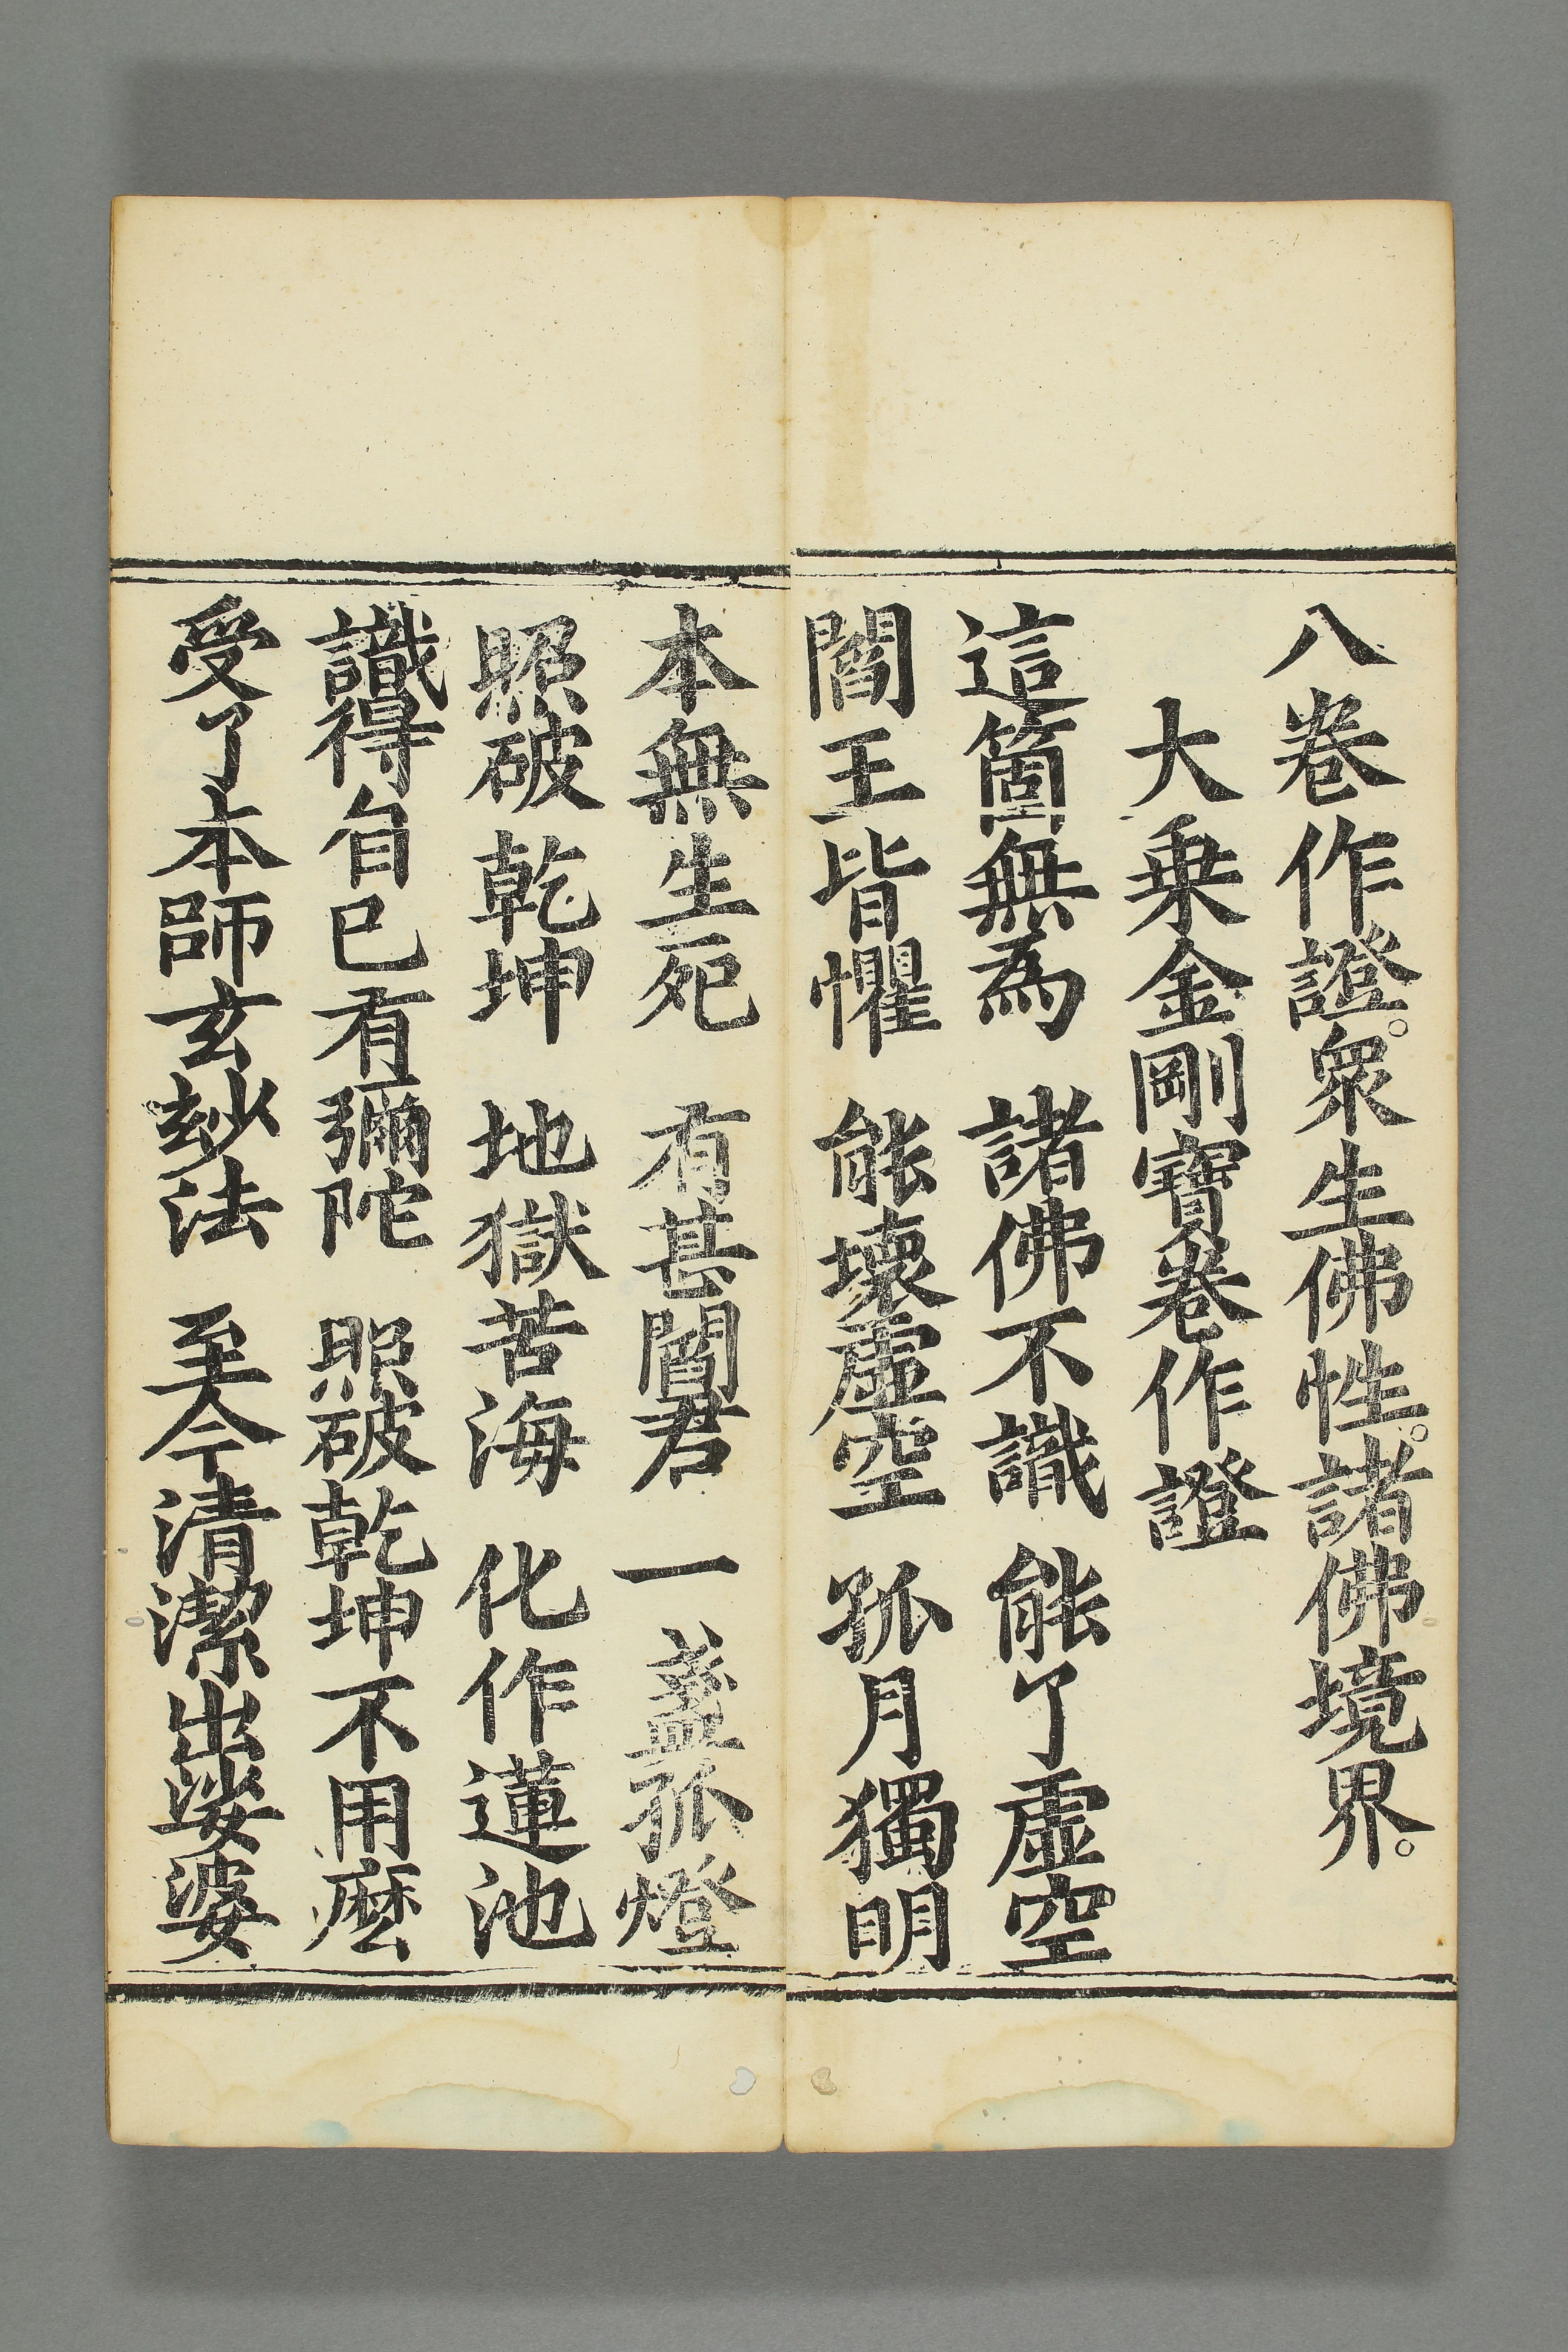 八卷作證。衆生佛性。諸佛境界。
大乗金剛寶卷作證
這箇無為　諸佛不識　能了虚空
閻王皆懼　能壞虚空　孤月獨明
本無生死　有甚閻君　一盞孤燈
照破乾坤　地獄苦海　化作蓮池
識得自已有彌陀　照破乾坤不用麽
受了本師玄玅法　至今清潔出娑婆